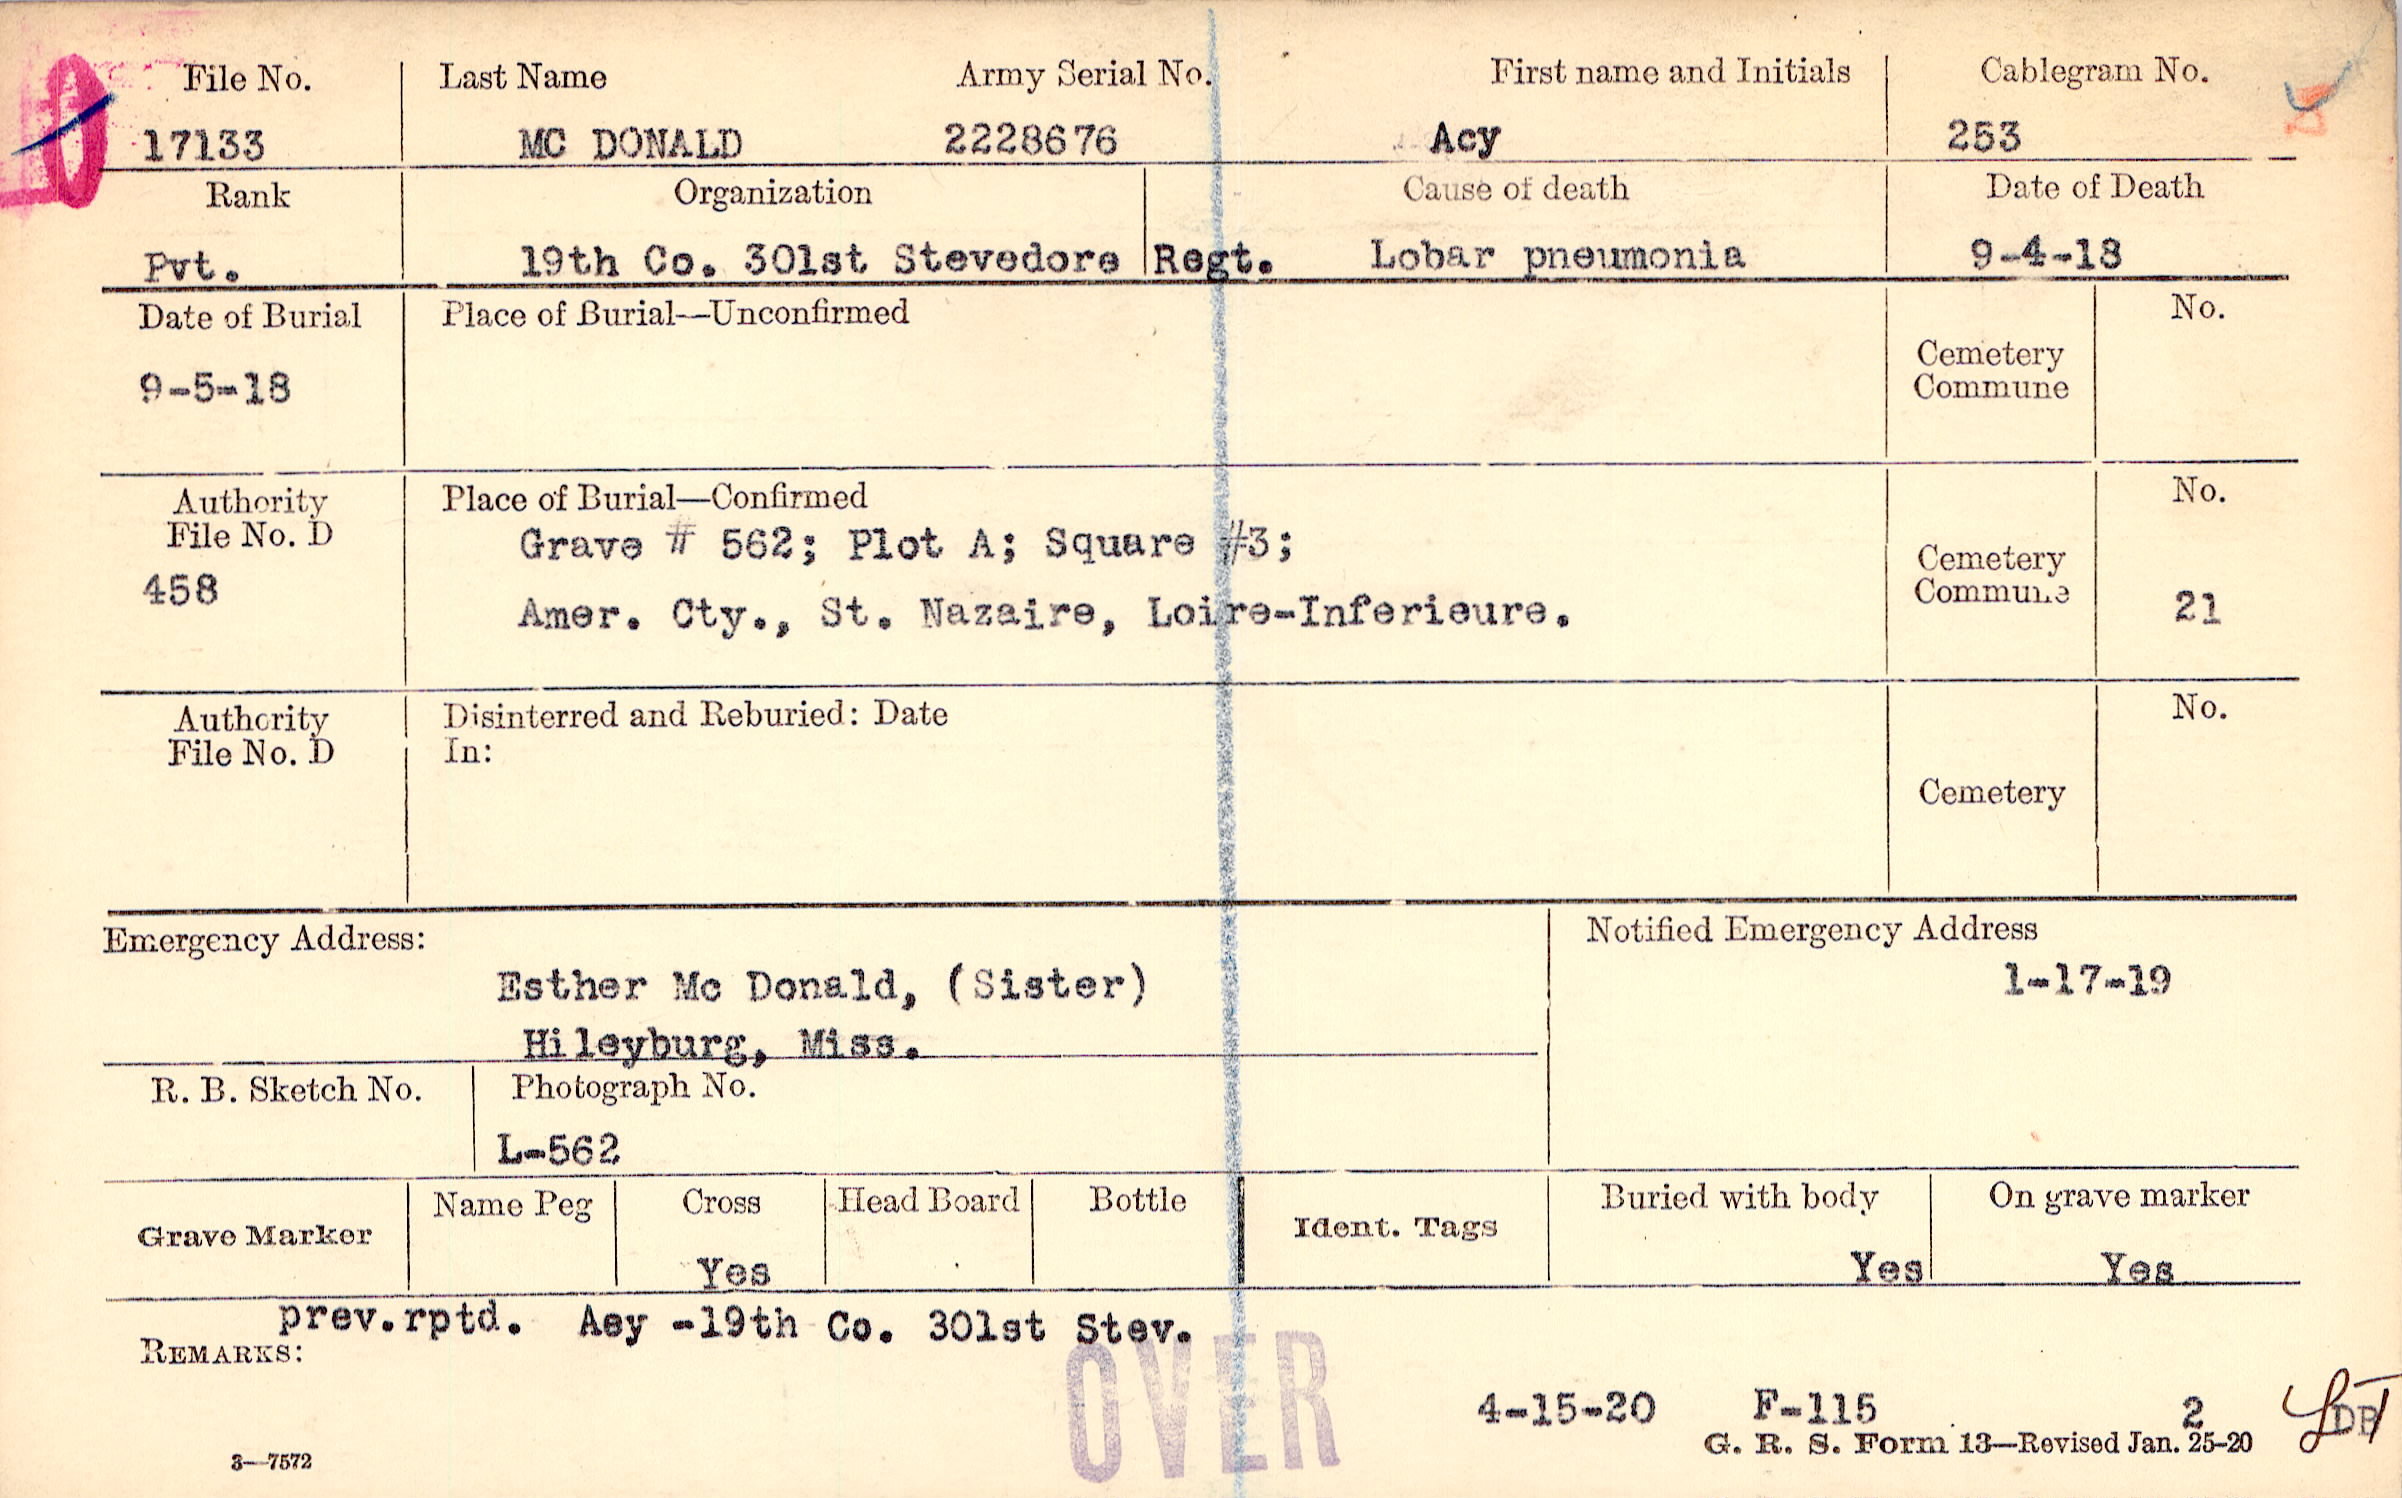 File No. Last Name Army Serial No. First name and Initials Cablegram No.
17133 MC DONALD 2228676 Acy 253
Rank Organization Cause of death Date of Death
Pvt. 19th Co. 301st Stevedore Regt. Lobar pneumonia 9-4-18
Date of Burial Place of Burial—Unconfirmed No.
9-5-18
Cemetery
Commune
Authority Place of Burial—Confirmed No.
File No. D Grave # 562; Plot A; Square #3;
458 Amer. Cty., St. Nazaire, Loire-Inferieure.
Cemetery
Commune 21
Authority Disinterred and Reburied: Date No.
File No. D In:
Cemetery
Emergency Address: Notified Emergency Address
Esther Mc Donald, (Sister) 1-17-19
Hileyburg, Miss.
R. B. Sketch No. Photograph No.
L-562
Grave Marker Name Peg Cross Head Board Bottle Ident. Tags Buried with body On grave marker
Yes Yes Yes
prev.rptd. Asy -19th Co. 301st Stev.
REMARKS:
OVER
4-15-20 F-115 2
G. R. S. Form 13—Revised Jan. 25-20
3—7572